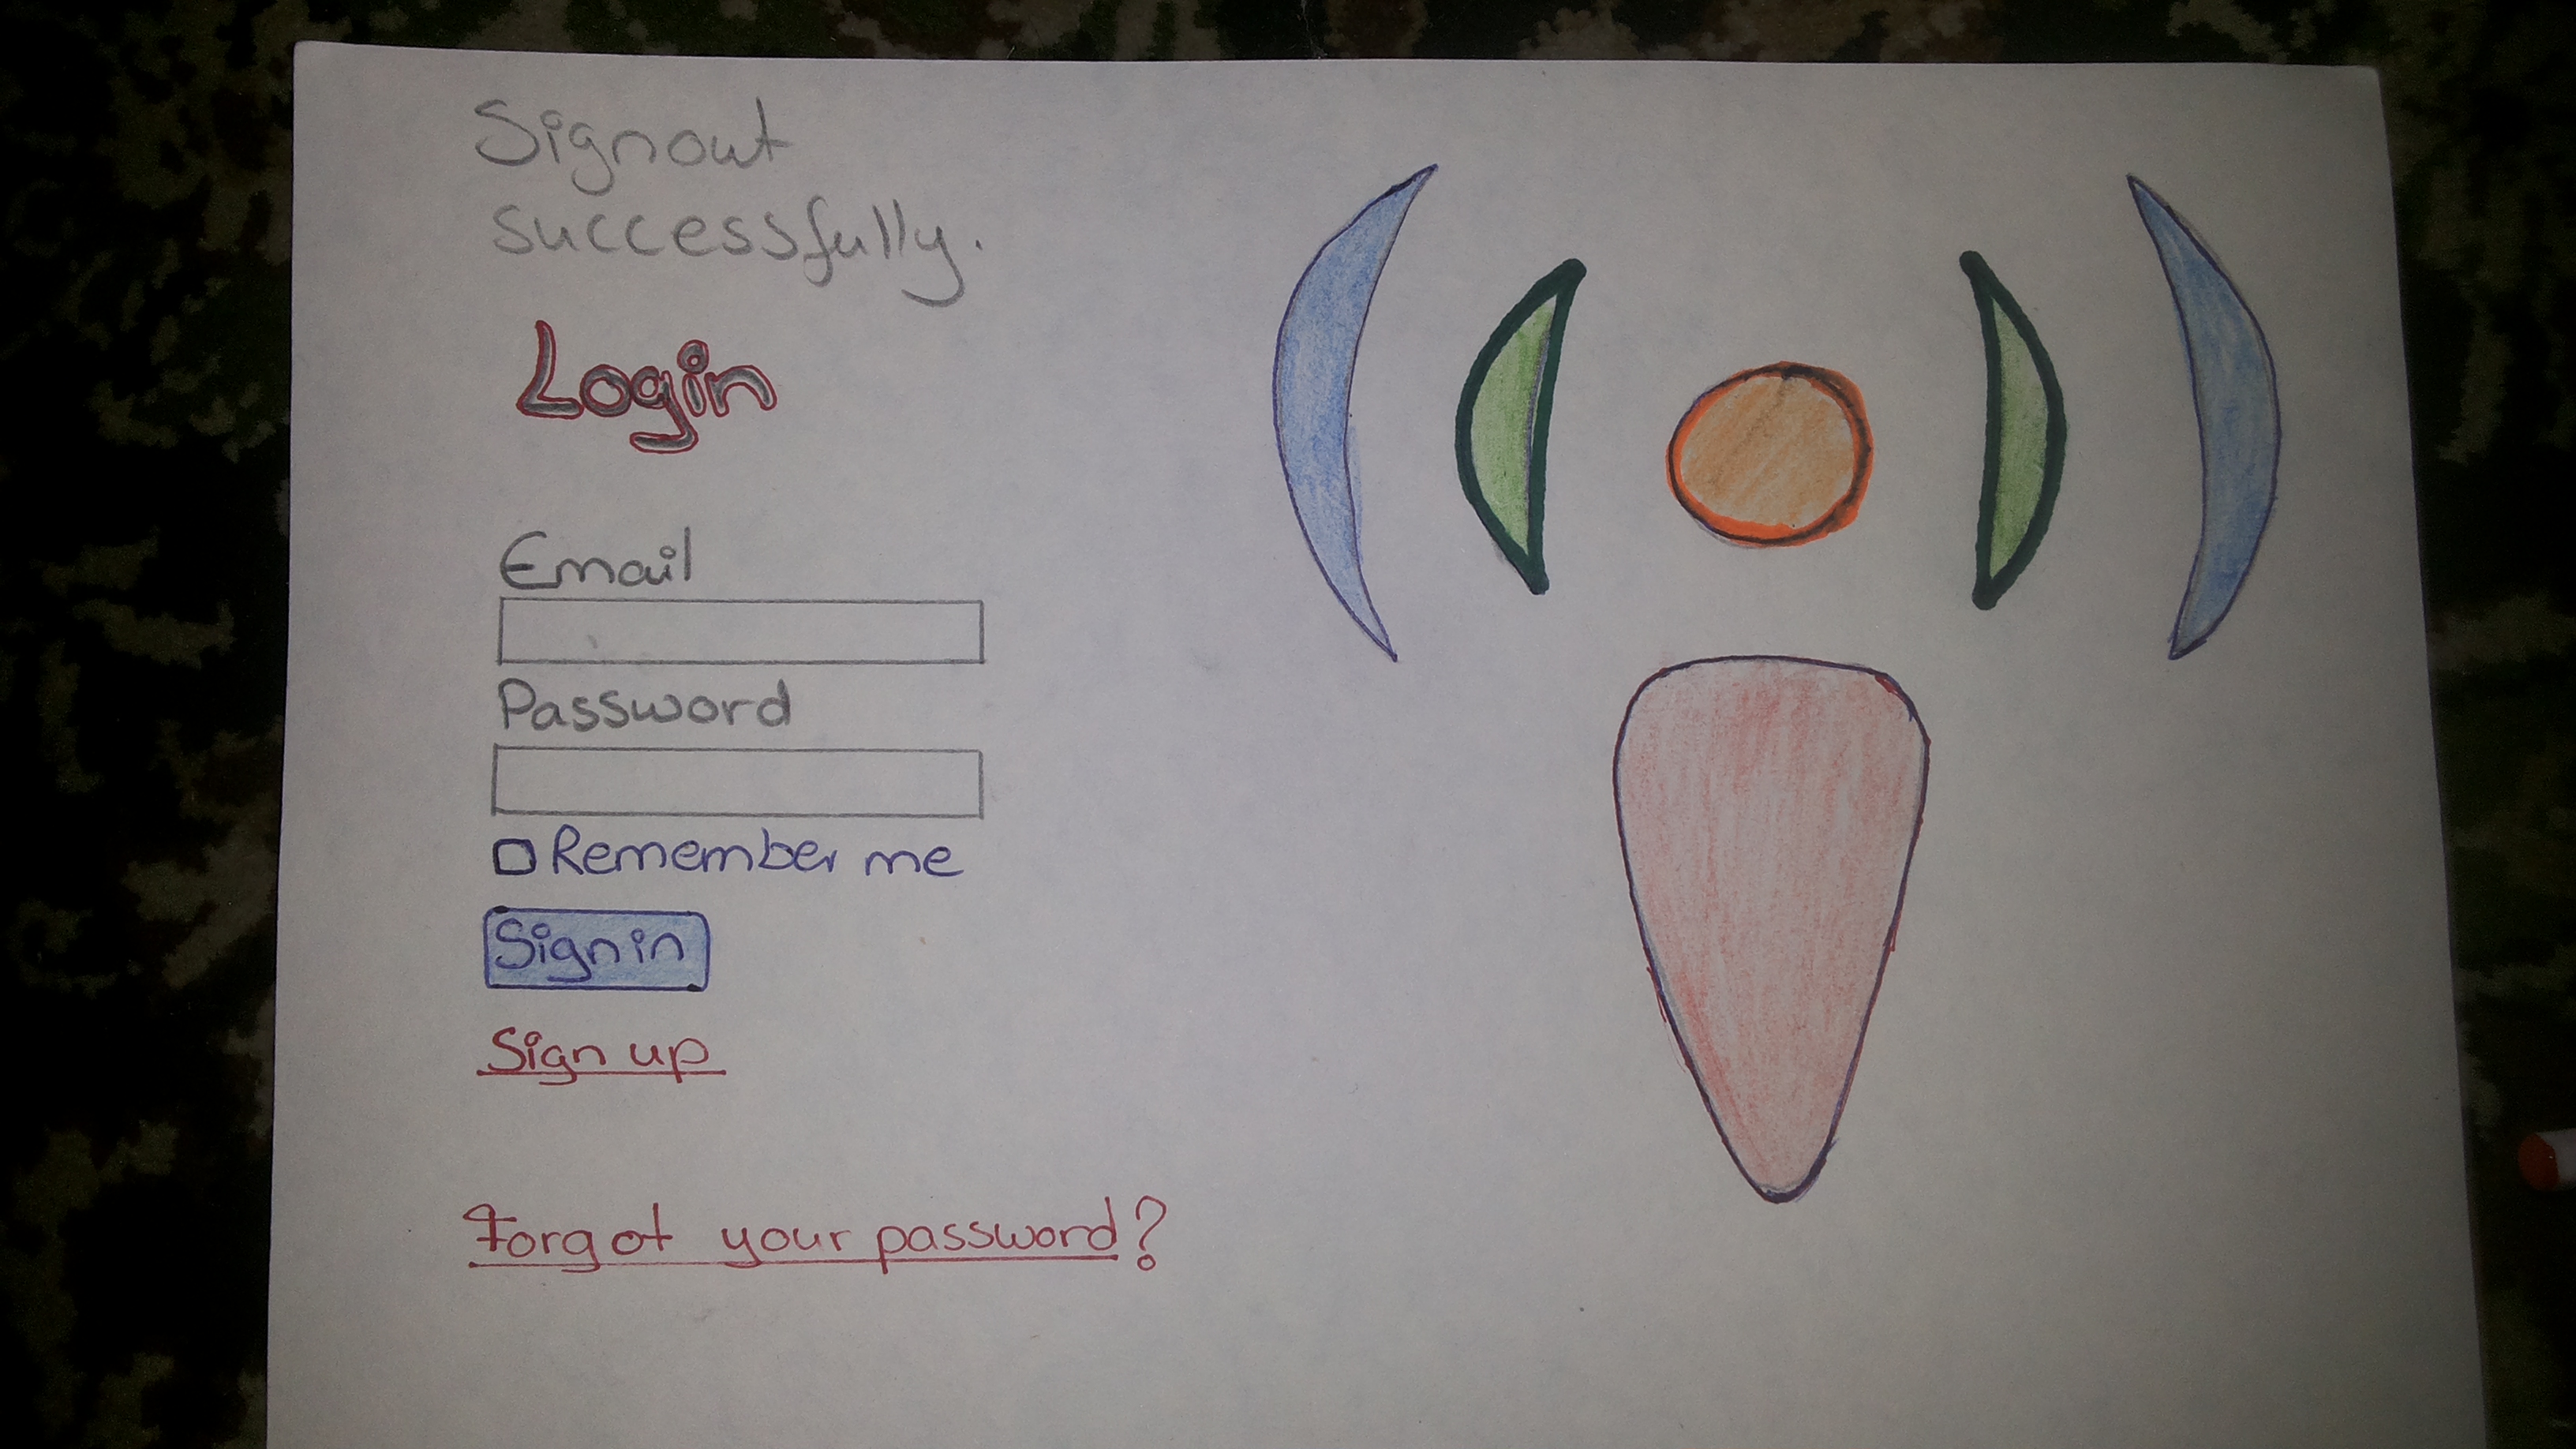 Signout
successfully.
Login
Email
Password
Remember me
Sign in
Sign up
Forgot your password?